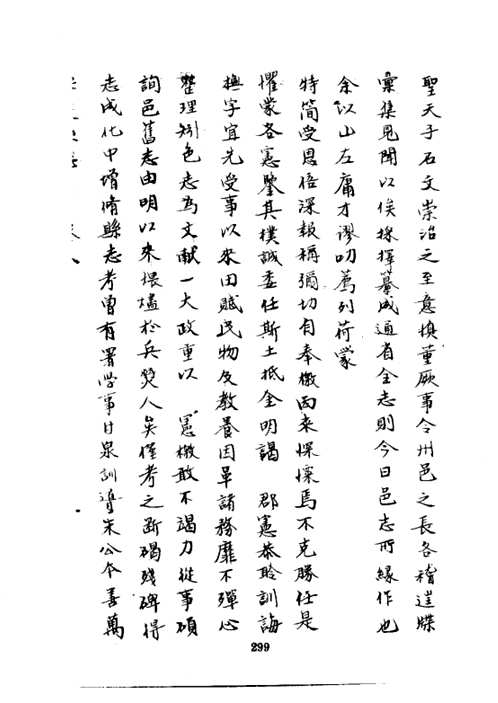 聖天子右文崇治之至意慎董厥事令州邑之長各稽迋牒
彙集見聞以俟採擇纂成通省全志則今日邑志所緣作也
余以山左庸才謬叨薦列荷蒙
特简受恩倍深報稱彌切自奉檄西来惴惴焉不克勝任是
懼蒙各憲鑒其樸誠委任斯土抵金明謁 郡憲恭聆訓誨
撫字宜先受事以来田賦民物及教養因革諸務靡不殫心
整理矧邑志為文献一大政重以 憲檄敢不竭力從事碩
詢邑舊志由明以来煨燼於兵燹人矣僅考之断碣殘碑得
志成化中增脩縣志考曾有署学事甘泉訓導朱公本善萬
299